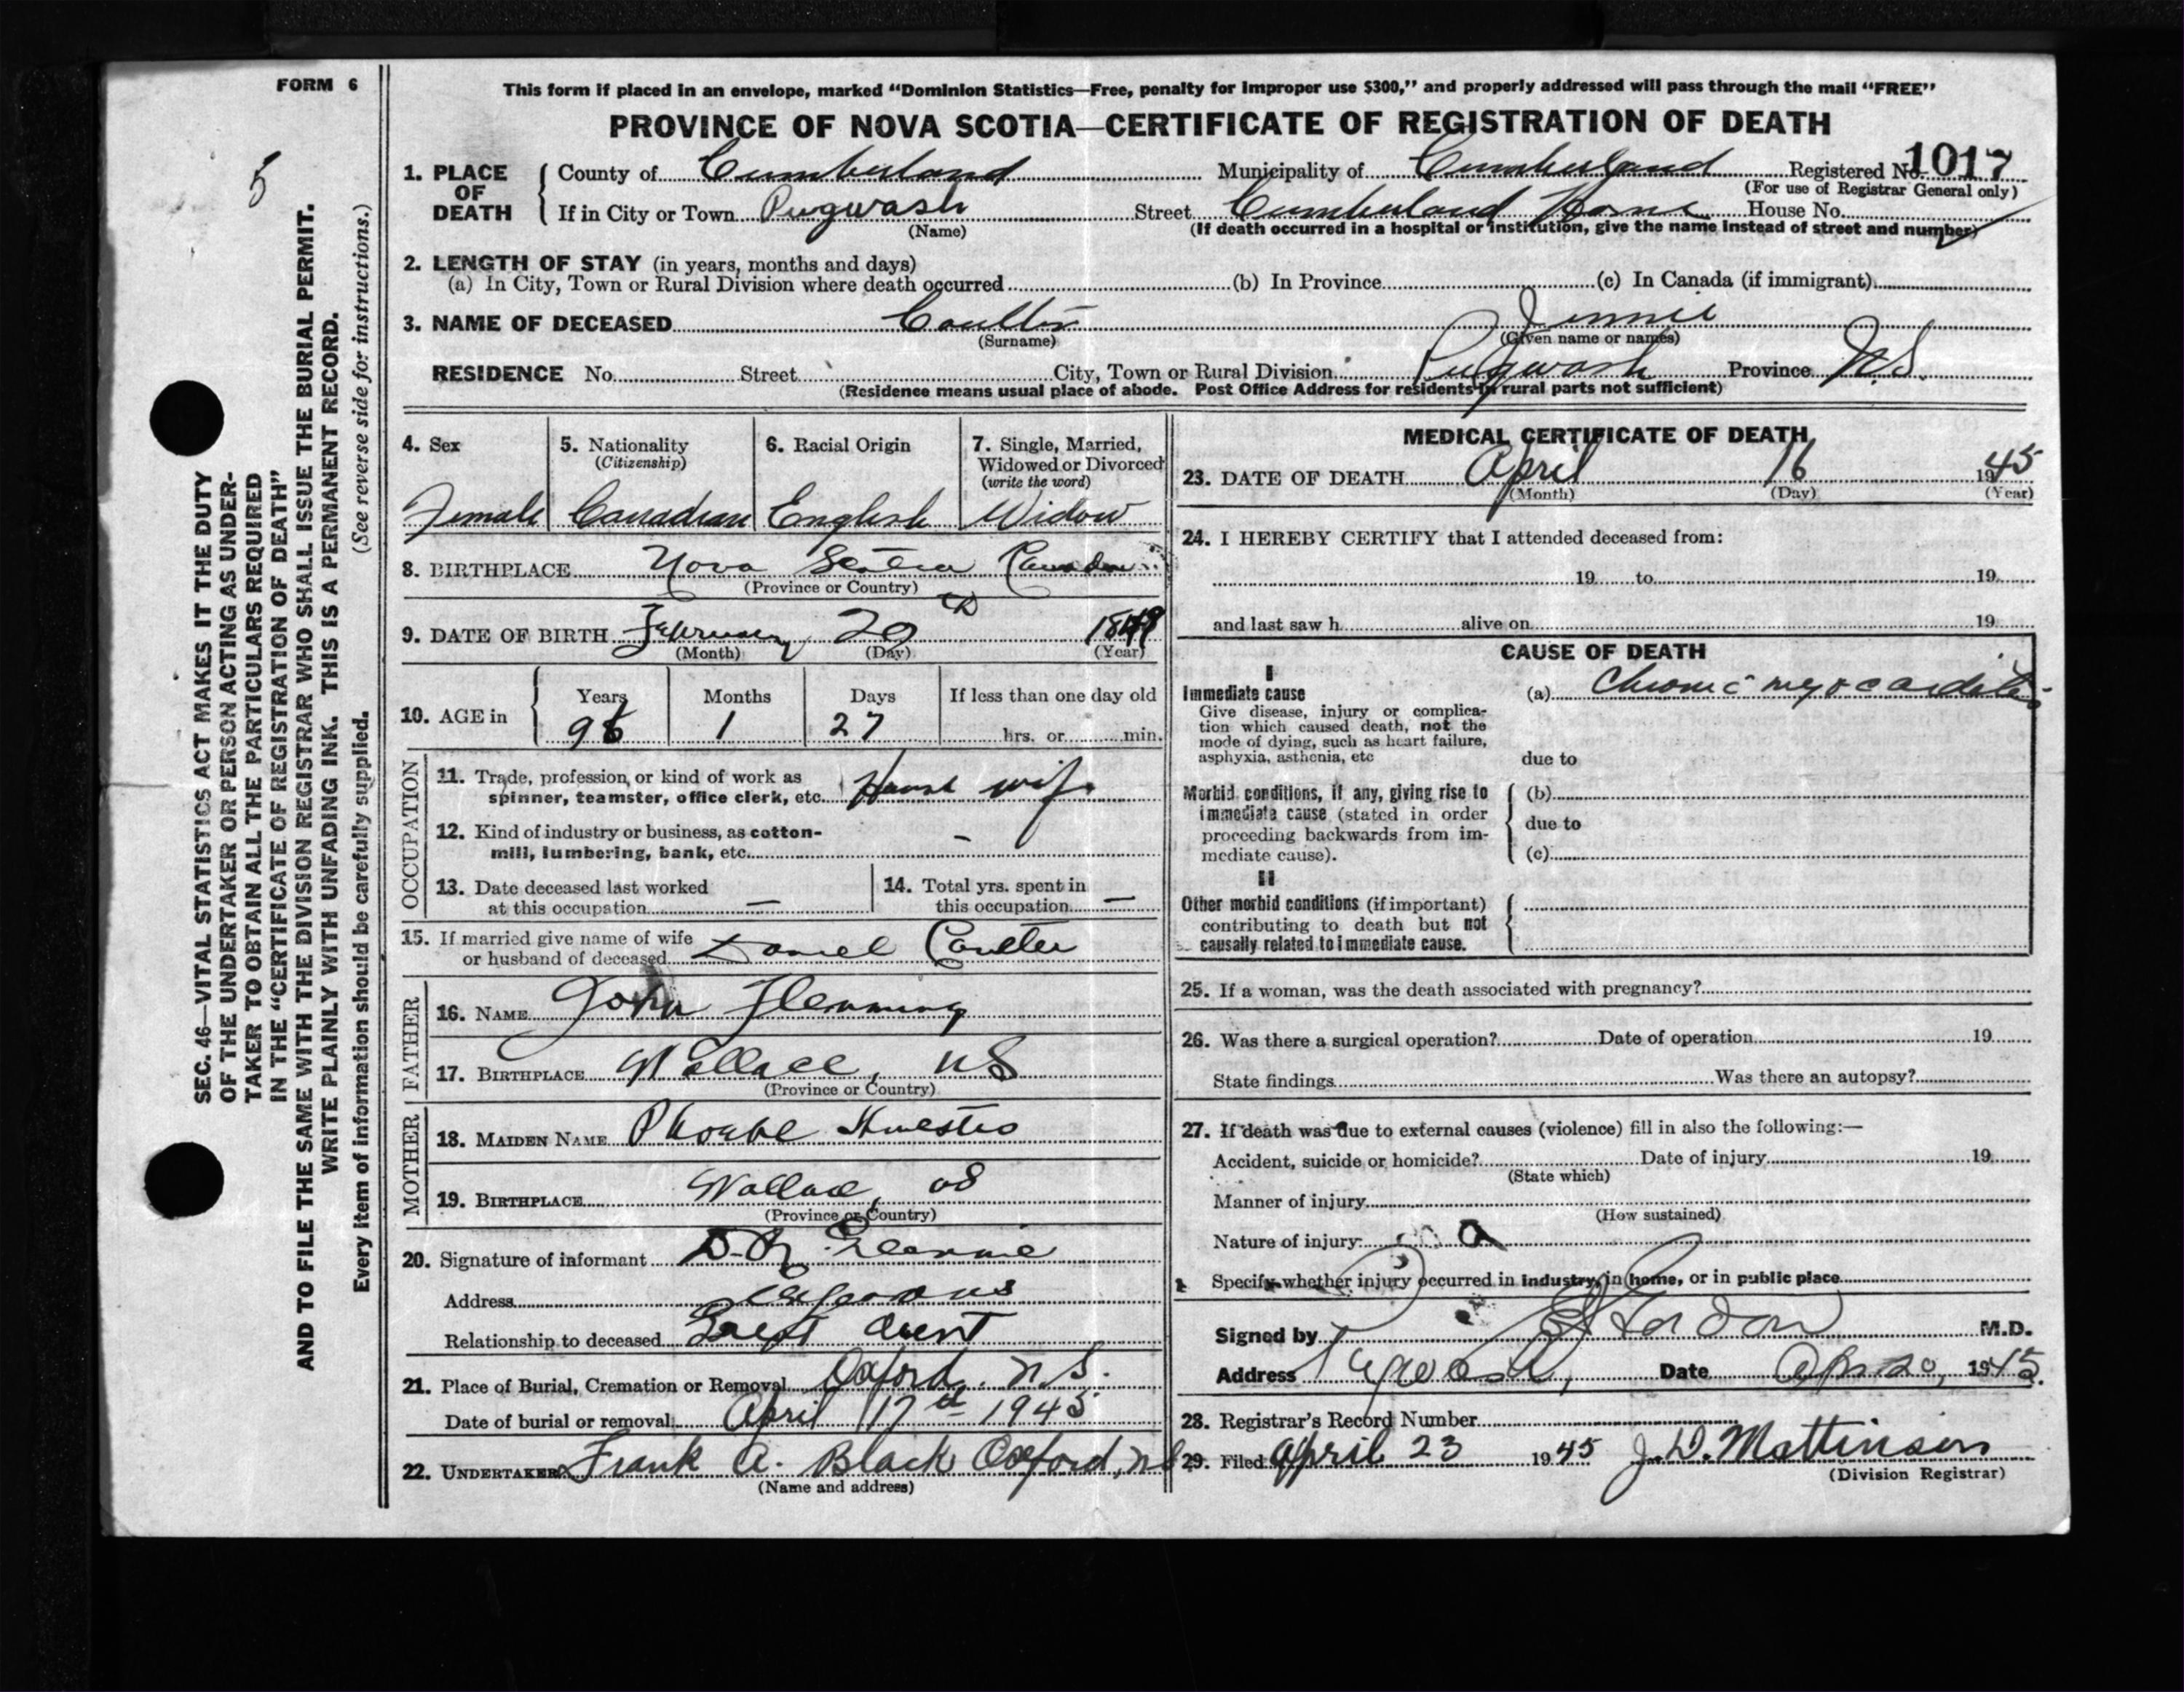 FORM 6
5
SEC. 46—VITAL STATISTICS ACT MAKES IT THE DUTY
OF THE UNDERTAKER OR PERSON ACTING AS UNDER-
TAKER TO OBTAIN ALL THE PARTICULARS REQUIRED
IN THE "CERTIFICATE OF REGISTRATION OF DEATH"
AND TO FILE THE SAME WITH THE DIVISION REGISTRAR WHO SHALL ISSUE THE BURIAL PERMIT.
WRITE PLAINLY WITH UNFADING INK. THIS IS A PERMANENT RECORD.
Every item of information should be carefully supplied. (See reverse side for instructions.)
This form if placed in an envelope, marked "Dominion Statistics—Free, penalty for improper use $300," and properly addressed will pass through the mail "FREE"
PROVINCE OF NOVA SCOTIA—CERTIFICATE OF REGISTRATION OF DEATH
1. PLACE OF DEATH
County of Cumberland Municipality of Cumberland Registered No. 1017
(For use of Registrar General only)
If in City or Town Pugwash Street Cumberland Home House No.
(Name) (If death occurred in a hospital or institution, give the name instead of street and number)
2. LENGTH OF STAY (in years, months and days)
(a) In City, Town or Rural Division where death occurred (b) In Province (c) In Canada (if immigrant)
3. NAME OF DECEASED Coulter Jennie
(Surname) (Given name or names)
RESIDENCE No. Street City, Town or Rural Division Pugwash Province N.S.
(Residence means usual place of abode. Post Office Address for residents in rural parts not sufficient)
4. Sex
Female
5. Nationality
(Citizenship)
Canadian
6. Racial Origin
English
7. Single, Married,
Widowed or Divorced
(write the word)
Widow
8. BIRTHPLACE Nova Scotia Canada
(Province or Country)
9. DATE OF BIRTH February 20th
(Month) (Day) (Year)
10. AGE in
Years Months Days If less than one day old
96 1 27 hrs. or min.
OCCUPATION
11. Trade, profession, or kind of work as
spinner, teamster, office clerk, etc. House wife
12. Kind of industry or business, as cotton-
mill, lumbering, bank, etc. –
13. Date deceased last worked
at this occupation —
14. Total yrs. spent in
this occupation —
15. If married give name of wife
or husband of deceased Daniel Coulter
FATHER
16. NAME John Flemming
17. BIRTHPLACE Wallace, NS
(Province or Country)
MOTHER
18. MAIDEN NAME Phoebe Huestis
19. BIRTHPLACE Wallace, NS
(Province or Country)
20. Signature of informant
Address
Relationship to deceased Great Aunt
21. Place of Burial, Cremation or Removal Oxford. N.S.
Date of burial or removal April 17th 1945
22. UNDERTAKER Frank A. Black Oxford, NS
(Name and address)
MEDICAL CERTIFICATE OF DEATH
23. DATE OF DEATH April 16 1945
(Month) (Day) (Year)
24. I HEREBY CERTIFY that I attended deceased from:
19 to 19
and last saw h alive on 19
CAUSE OF DEATH
I
Immediate cause
Give disease, injury or complica-
tion which caused death, not the
mode of dying, such as heart failure,
asphyxia, asthenia, etc
(a) Chronic myocarditis
due to
Morbid conditions, if any, giving rise to
immediate cause (stated in order
proceeding backwards from im-
mediate cause).
(b)
due to
(c)
II
Other morbid conditions (if important)
contributing to death but not
causally related to immediate cause.
25. If a woman, was the death associated with pregnancy?
26. Was there a surgical operation? Date of operation 19
State findings Was there an autopsy?
27. If death was due to external causes (violence) fill in also the following:—
Accident, suicide or homicide? Date of injury 19
(State which)
Manner of injury
(How sustained)
Nature of injury
Specify whether injury occurred in industry, in home, or in public place
Signed by M.D.
Address Pugwash, Date Apr 20, 1945.
28. Registrar's Record Number
29. Filed April 23 1945 J. D. Mattinson
(Division Registrar)